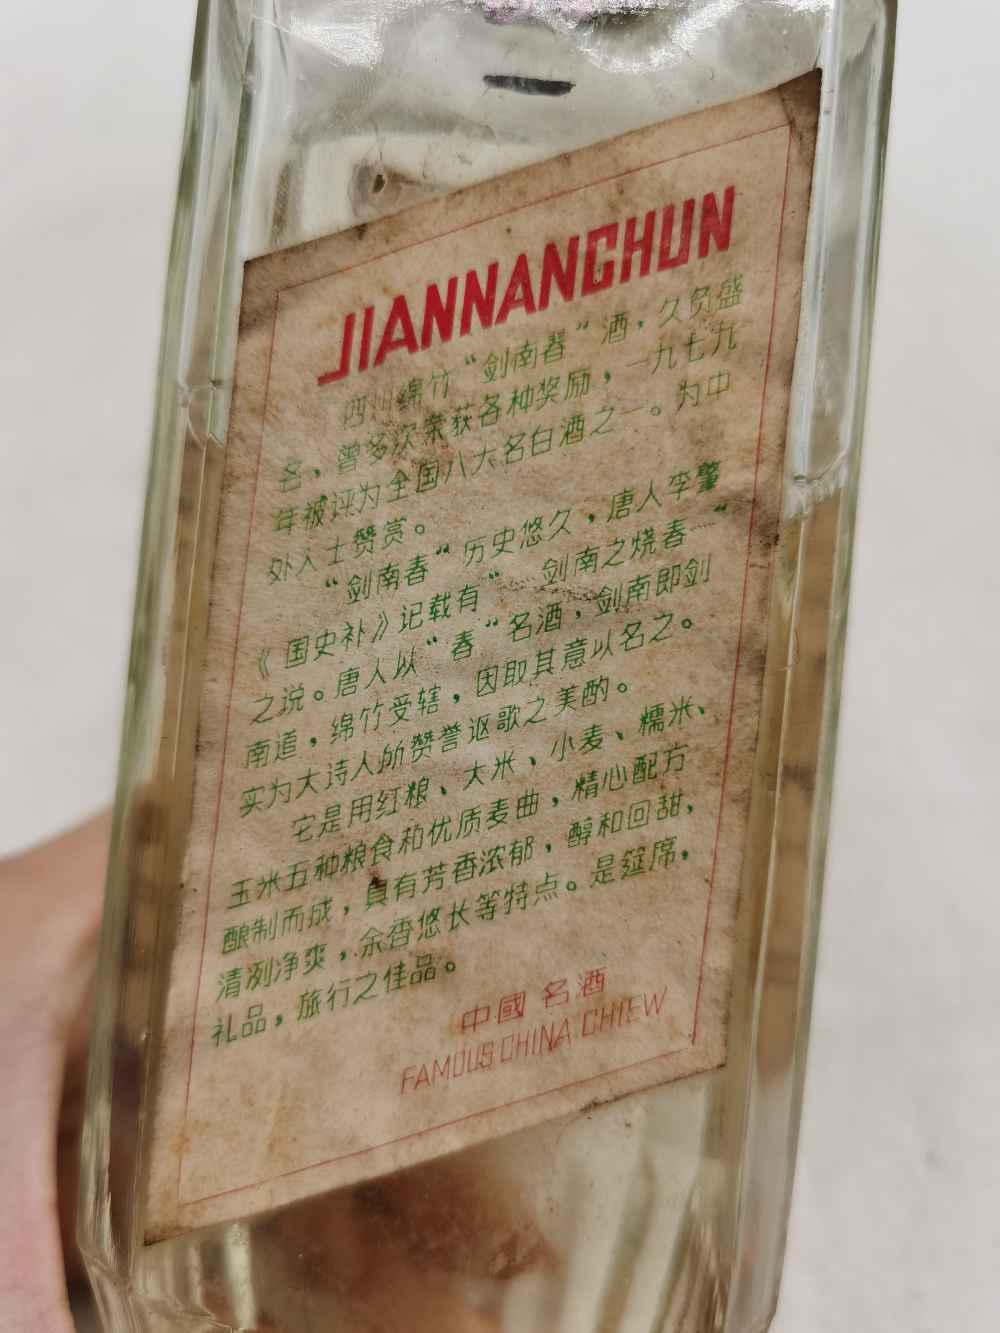 JIANNANCHUN
四川绵竹“剑南春”酒，久负盛
名，曾多次荣获各种奖励，一九七九
年被评为全国八大名白酒之一。为中
外人士赞赏。
“剑南春”历史悠久，唐人李肇
《国史补》记载有“……剑南之烧春……”
之说。唐人以“春”名酒，剑南即剑
南道，绵竹受辖，因取其意以名之。
实为大诗人所赞誉讴歌之美酌。
它是用红粮、大米、小麦、糯米、
玉米五种粮食和优质麦曲，精心配方
酿制而成，具有芳香浓郁，醇和回甜，
清冽净爽，余香悠长等特点。是筵席，
礼品，旅行之佳品。
中國名酒
FAMOUS CHINA CHIEW